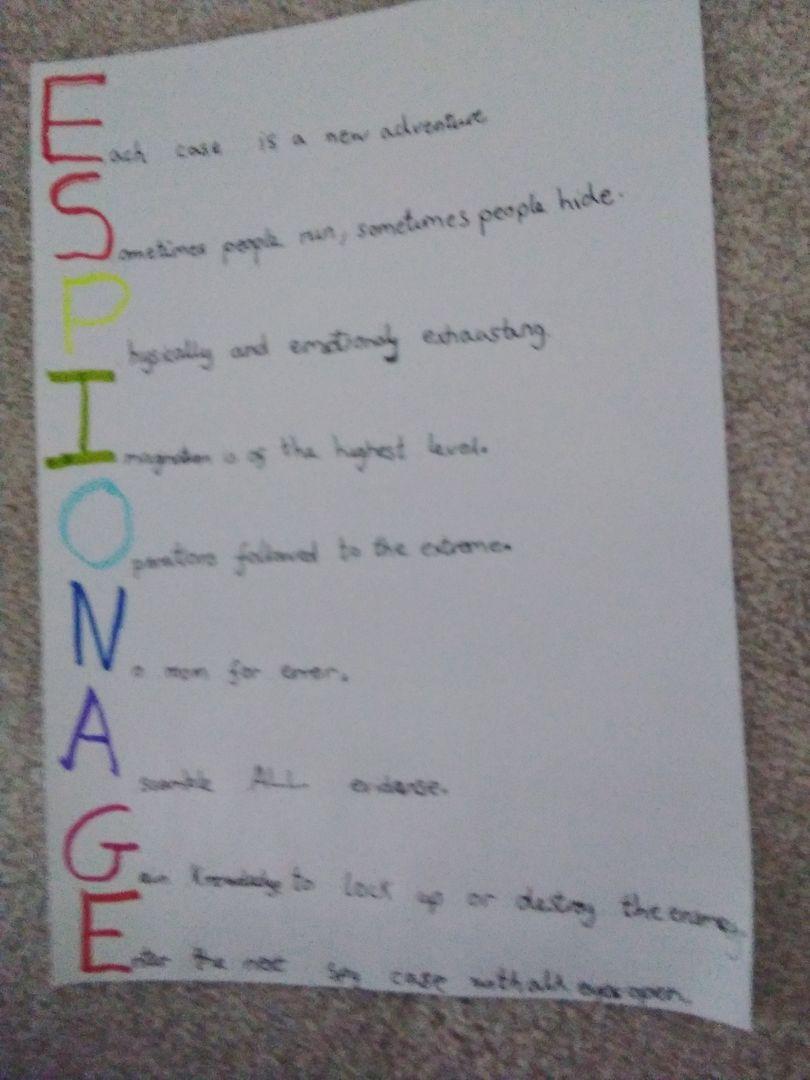 Each case is a new adventure
Sometimes people run, sometimes people hide.
Physically and emotionaly exhausting.
Imagination is of the highest level.
Operations followed to the extreme.
No room for error.
Assemble ALL evidense.
Gain knowledge to lock up or destroy the enemy.
Enter the next spy case with all eyes open.